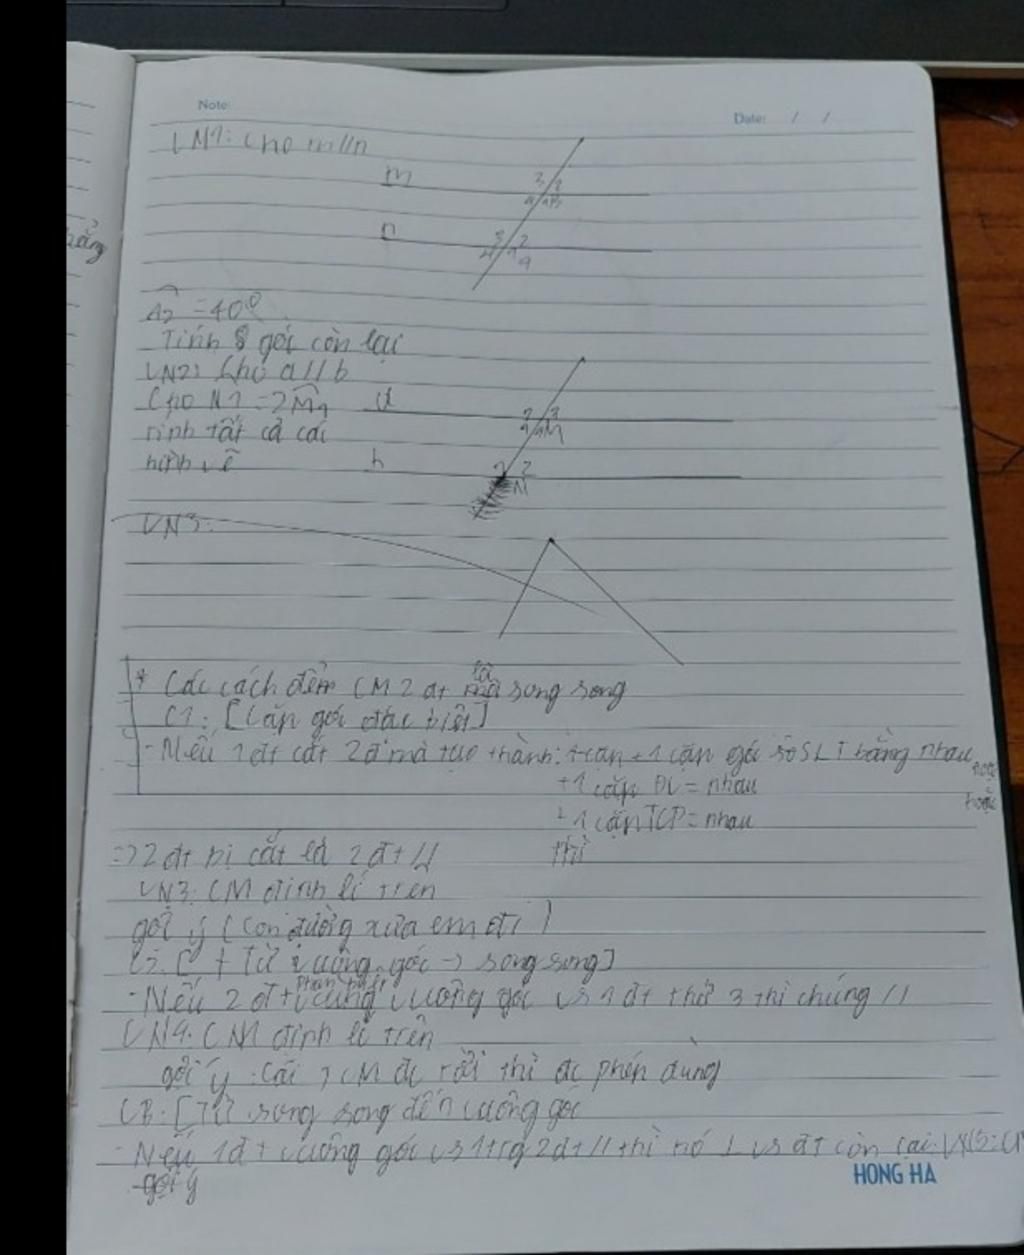 Note:
Date: / /
VN1: Cho m//n
m
3 2
4 1B
n
3 2
4 1
A2 = 40°
Tính 8 góc còn lại
VN2: Cho a//b
Cho N1 = 2M1
a
2 3
1 4M
tính tất cả các
hình vẽ
b
1 2
N
VN3:
* Các cách để CM 2 đt song song
C1: [Cặp góc đặc biệt]
- Nếu 1 đt cắt 2 đ mà tạo thành: + 1 cặp góc SLT bằng nhau
+ 1 cặp ĐV = nhau
hoặc
+ 1 cặp TCP = nhau
=> 2 đt bị cắt là 2 đt // thì
VN3: CM định lí trên
gợi ý (con đường xưa em đi)
C2: [ + Từ vuông góc -> song song]
phân biệt
- Nếu 2 đt cùng vuông góc vs 1 đt thứ 3 thì chúng //
VN4: CM định lí trên
gợi ý: Cái 1 CM đc rồi thì đc phép dùng
C3: [Từ song song đến vuông góc
- Nếu 1 đt vuông góc vs 1 trg 2 đt // thì nó ⊥ vs đt còn lại. VN5: CM
HONG HA
- gợi ý